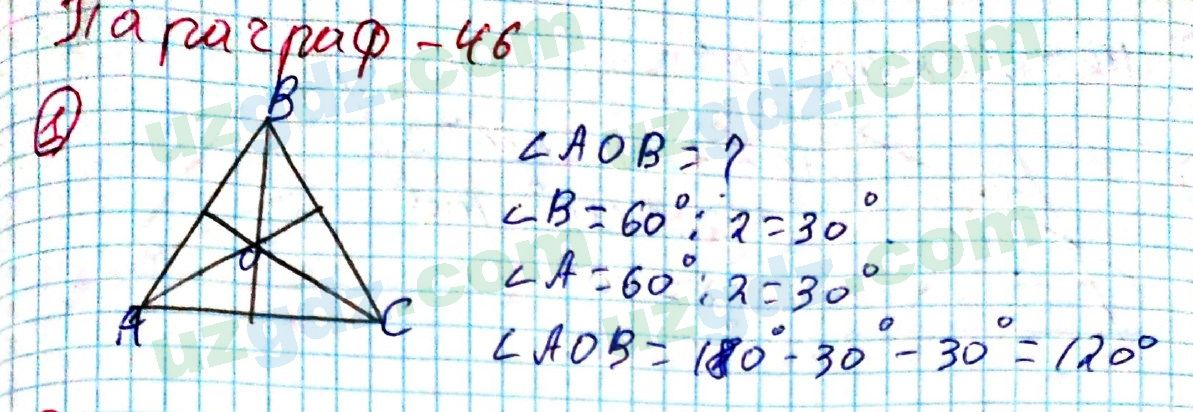 Параграф -46
1
B
O
A
C
∠AOB = ?
∠B = 60° : 2 = 30°.
∠A = 60° : 2 = 30°
∠AOB = 180° - 30° - 30° = 120°
uzgdz.com
uzgdz.com
uzgdz.com
uzgdz.com